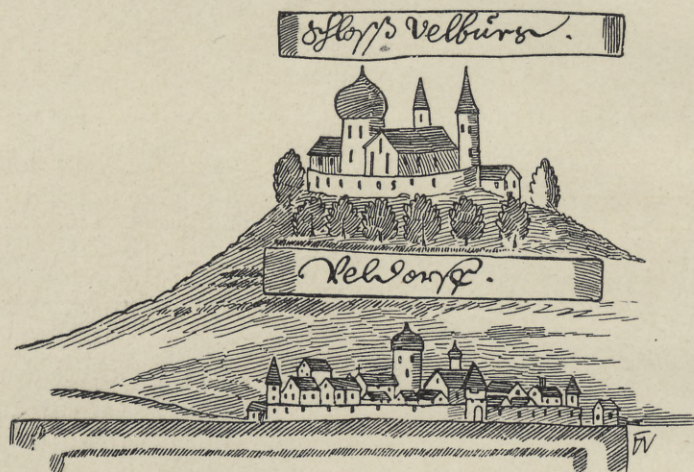 Schloss Velburg.
Veldorff.